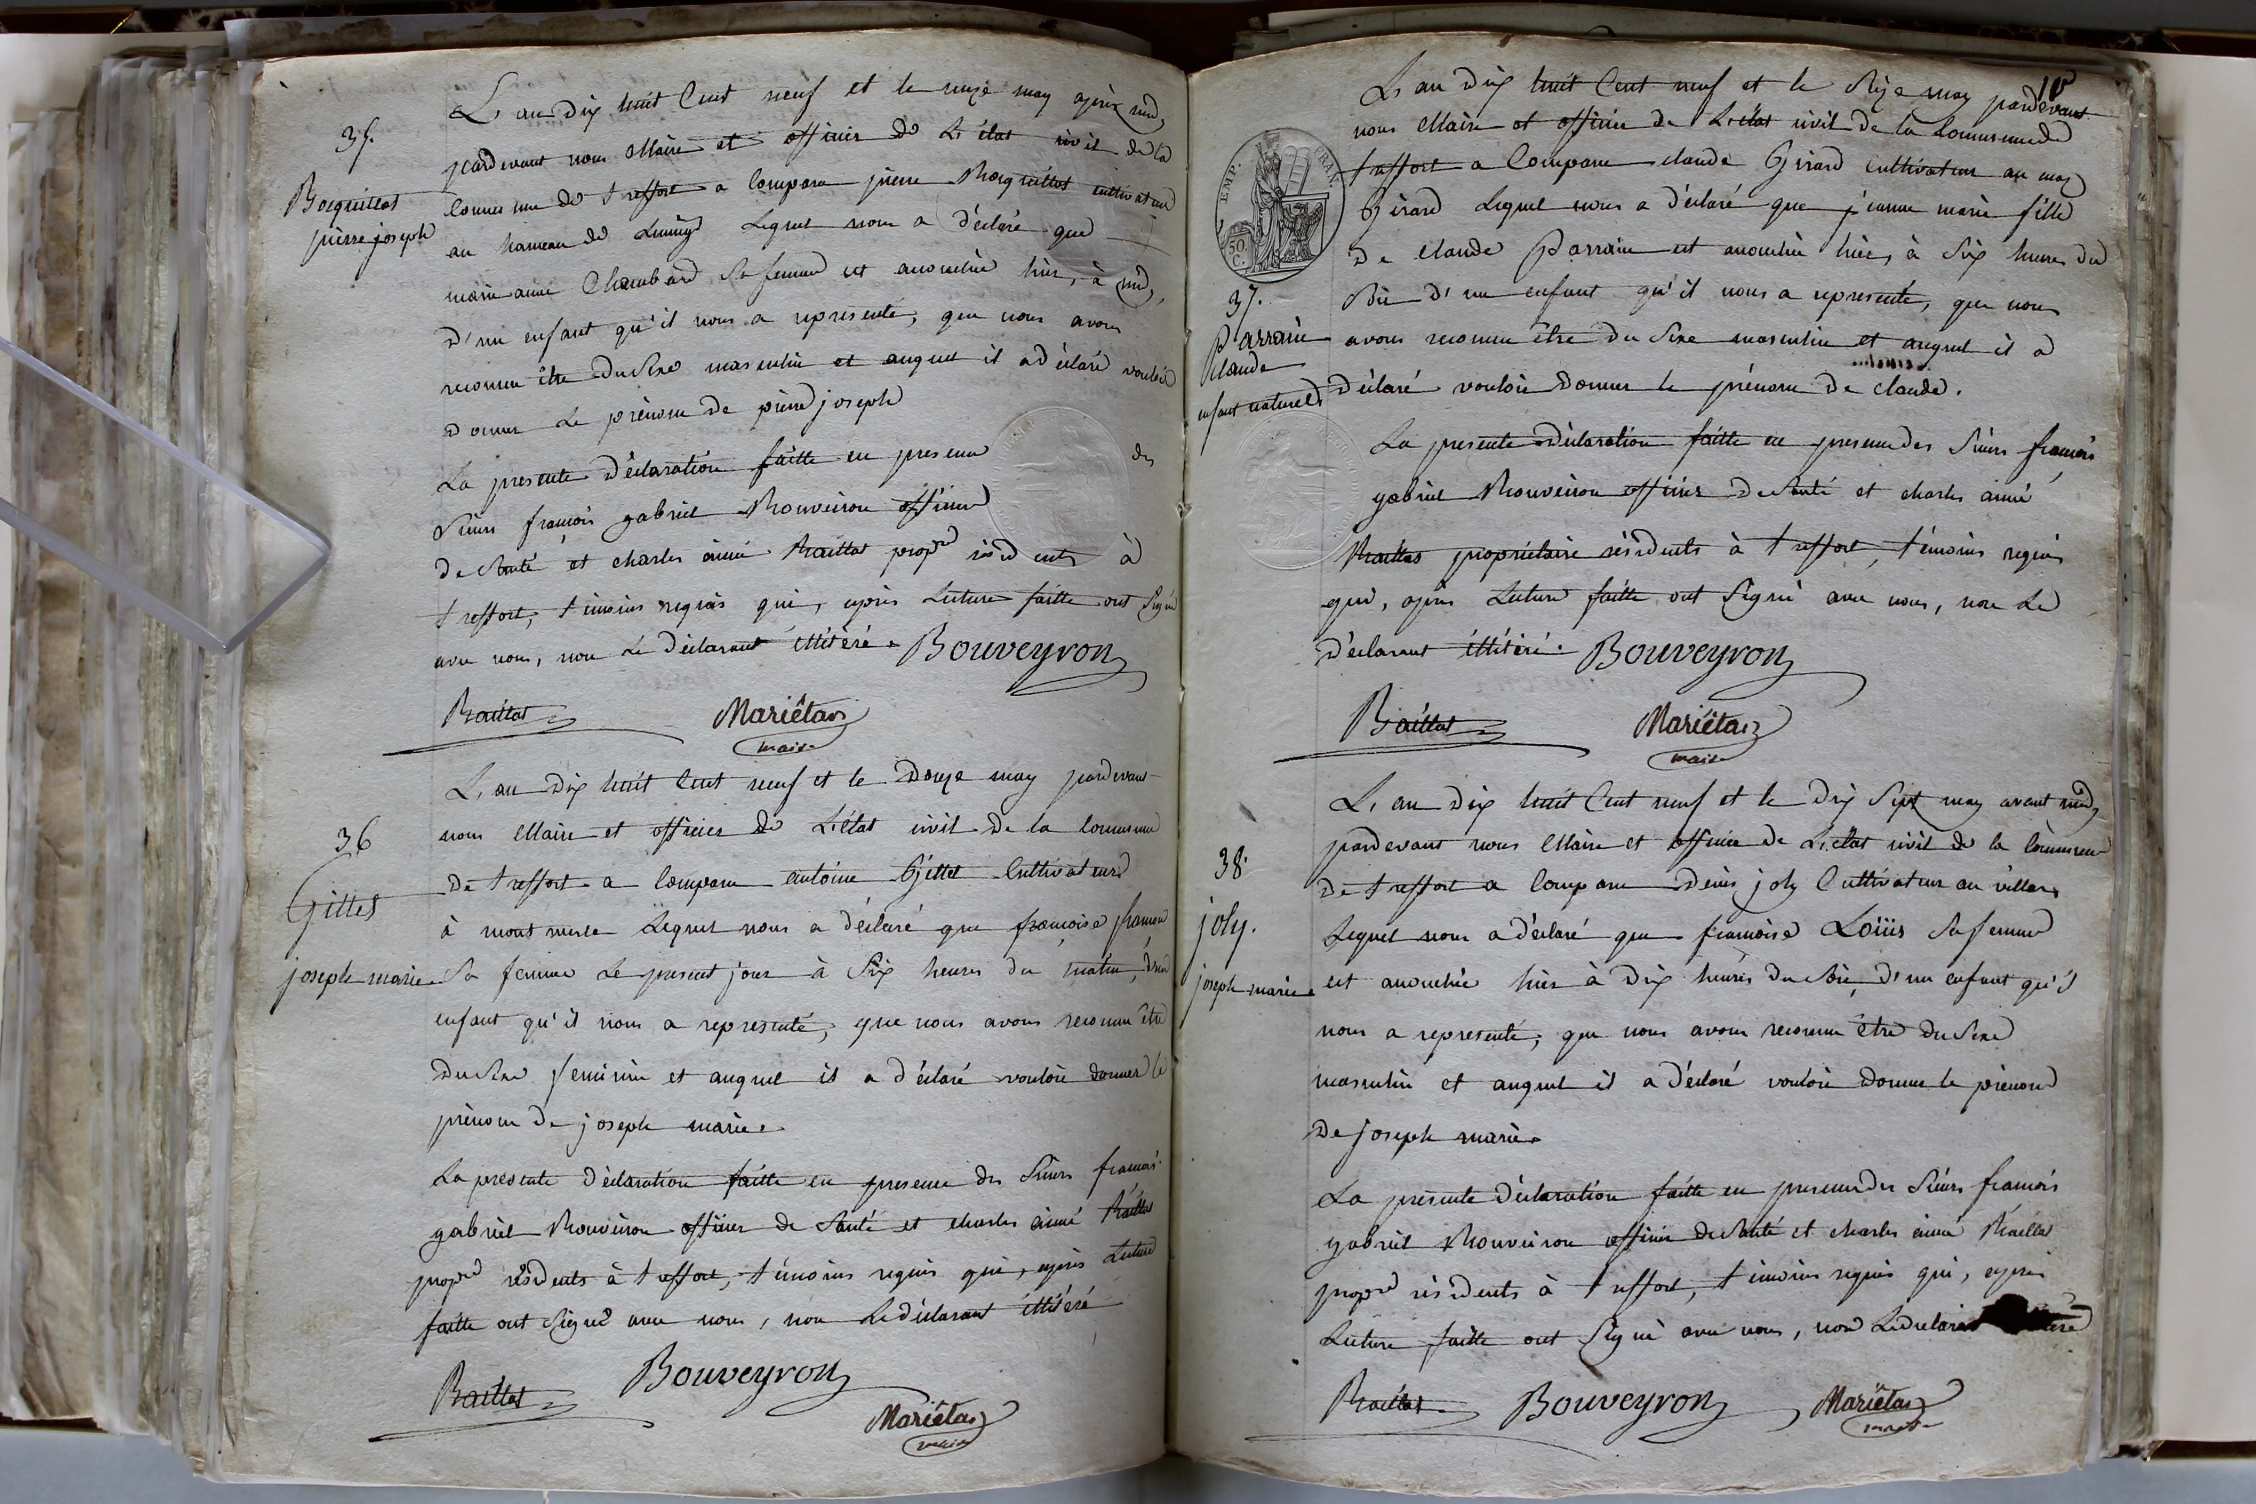 35.
Bocquillot
pierre joseph
L'an dix huit Cent neuf et le onze may après midy
pardevant nous Maire et officier de L'état civil de la
Commune de treffort a Comparu pierre Bocquillot cultivateur
au hameau de Lequel nous a déclaré que
marie anne Chambard Sa femme est accouchée hier, à midy,
d'un enfant qu'il nous a representé, que nous avons
reconnu être du Sexe masculin et auquel il a déclaré vouloir
donner Le prénom de pierre joseph
La presente déclaration faitte en presence des
Sieurs françois gabriel Bouveiron officier
de Santé et charles aimé Baillat propre résidents à
treffort, témoins requis qui, après Lecture faitte ont Signé
avec nous, non Le déclarant illitéré. Bouveyron
Baillat Mariétan
maire
36
Gillet
joseph marie
L'an dix huit Cent neuf et le Douze may pardevant
nous Maire et officier de L'état civil de la Commune
de treffort a Comparu antoine Gillet Cultivateur
à mont merle Lequel nous a déclaré que françoise
Sa femme Le present jour à Six heures du matin, d'un
enfant qu'il nous a representé, que nous avons reconnu être
du Sexe feminin et auquel il a déclaré vouloir donner le
prénom de joseph marie.
La presente déclaration faitte en presence des Sieurs françois
gabriel Bouveiron officier de Santé et charles aimé Baillat
propre résidents à treffort, témoins requis qui, après Lecture
faitte ont Signé avec nous, non Le déclarant illitéré
Baillat Bouveyron Mariétan
maire
10
EMP. FRAN.
50 C.
37.
Parrain
Claude
enfant naturel
L'an dix huit Cent neuf et le Seize may pardevant
nous Maire et officier de L'état civil de la Commune de
treffort a Comparu claude Girard cultivateur au mas
Girard Lequel nous a déclaré que jeanne marie fille
de claude Parrain est accouchée hier, à Six heures du
Soir d'un enfant qu'il nous a representé, que nous
avons reconnu être du Sexe masculin et auquel il a
déclaré vouloir donner le prénom de claude.
La presente déclaration faitte en presence des Sieurs françois
gabriel Bouveiron officier de Santé et charles aimé
Baillat propriétaire résidents à treffort, témoins requis
qui, après Lecture faitte ont Signé avec nous, non Le
déclarant illitéré. Bouveyron
Baillat Mariétan
maire
38.
joly.
joseph marie
L'an dix huit Cent neuf et le dix Sept may avant midy
pardevant nous Maire et officier de L'état civil de la Commune
de treffort a Comparu denis joly Cultivateur au villars
Lequel nous a déclaré que françoise Loüis Sa femme
est accouchée hier à dix heures du Soir, d'un enfant qu'il
nous a representé, que nous avons reconnu être du Sexe
masculin et auquel il a déclaré vouloir donner le prénom
de joseph marie.
La presente déclaration faitte en presence des Sieurs françois
gabriel Bouveiron officier de Santé et charles aimé Baillat
propre résidents à treffort, témoins requis qui, après
Lecture faitte ont Signé avec nous, non Le déclarant
Baillat Bouveyron Mariétan
maire